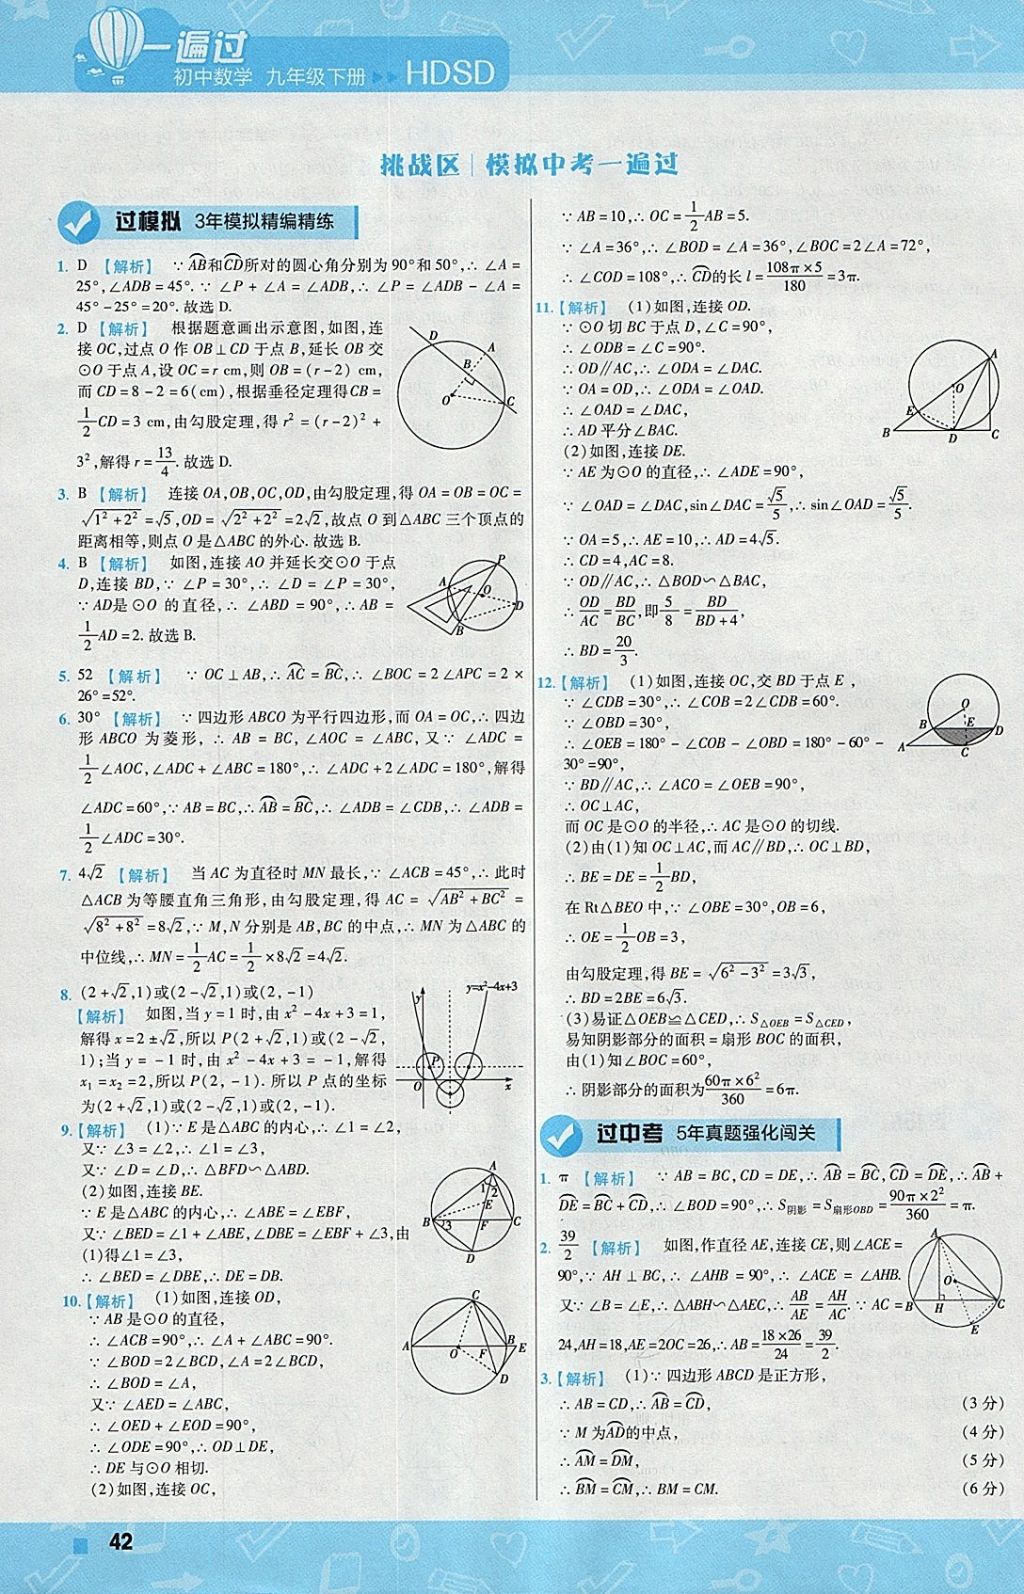 一遍过
初中数学 九年级下册 HDSD
挑战区 | 模拟中考一遍过
过模拟 3年模拟精编精练
1. D 【解析】 ∵ A͡B和C͡D所对的圆心角分别为90°和50°,∴ ∠A =
25°,∠ADB = 45°. ∵ ∠P + ∠A = ∠ADB,∴ ∠P = ∠ADB - ∠A =
45° - 25° = 20°. 故选 D.
2. D 【解析】 根据题意画出示意图,如图,连
接 OC,过点 O 作 OB ⊥ CD 于点 B,延长 OB 交
⊙O 于点 A,设 OC = r cm,则 OB = (r - 2) cm,
而 CD = 8 - 2 = 6(cm),根据垂径定理得CB =
1/2 CD = 3 cm,由勾股定理,得 r² = (r - 2)² +
3²,解得 r = 13/4. 故选 D.
D A B O C
3. B 【解析】 连接 OA,OB,OC,OD,由勾股定理,得 OA = OB = OC =
√(1² + 2²) = √5,OD = √(2² + 2²) = 2√2,故点 O 到△ABC 三个顶点的
距离相等,则点 O 是△ABC 的外心. 故选 B.
4. B 【解析】 如图,连接 AO 并延长交⊙O 于点
D,连接 BD,∵ ∠P = 30°,∴ ∠D = ∠P = 30°,
∵ AD是 ⊙O 的直径,∴ ∠ABD = 90°,∴ AB =
1/2 AD = 2. 故选 B.
P A O D B
5. 52 【解析】 ∵ OC ⊥ AB,∴ A͡C = B͡C,∴ ∠BOC = 2∠APC = 2 ×
26° = 52°.
6. 30° 【解析】 ∵ 四边形 ABCO 为平行四边形,而 OA = OC,∴ 四边
形 ABCO 为菱形, ∴ AB = BC, ∠AOC = ∠ABC, 又 ∵ ∠ADC =
1/2 ∠AOC,∠ADC + ∠ABC = 180°,∴ ∠ADC + 2∠ADC = 180°,解得
∠ADC = 60°,∵ AB = BC,∴ A͡B = B͡C,∴ ∠ADB = ∠CDB,∴ ∠ADB =
1/2 ∠ADC = 30°.
7. 4√2 【解析】 当 AC 为直径时 MN 最长,∵ ∠ACB = 45°,∴ 此时
△ACB 为等腰直角三角形,由勾股定理,得 AC = √(AB² + BC²) =
√(8² + 8²) = 8√2,∵ M,N 分别是 AB,BC 的中点,∴ MN 为△ABC 的
中位线,∴ MN = 1/2 AC = 1/2 × 8√2 = 4√2.
8. (2 + √2,1)或(2 - √2,1)或(2, - 1)
【解析】 如图,当 y = 1 时,由 x² - 4x + 3 = 1,
解得 x = 2 ± √2,所以 P(2 + √2,1)或(2 - √2,
1);当 y = - 1 时,由 x² - 4x + 3 = - 1,解得
x₁ = x₂ = 2,所以 P(2, - 1). 所以 P 点的坐标
为(2 + √2,1)或(2 - √2,1)或(2, - 1).
y y=x²-4x+3 P O x
9. 【解析】 (1)∵ E 是△ABC 的内心,∴ ∠1 = ∠2,
又∵ ∠3 = ∠2,∴ ∠1 = ∠3,
又∵ ∠D = ∠D,∴ △BFD∽△ABD.
(2)如图,连接 BE.
∵ E 是△ABC 的内心,∴ ∠ABE = ∠EBF,
又∵ ∠BED = ∠1 + ∠ABE,∠DBE = ∠EBF + ∠3,由
(1)得∠1 = ∠3,
∴ ∠BED = ∠DBE,∴ DE = DB.
A 1 2 E B 3 F C D
10. 【解析】 (1)如图,连接 OD,
∵ AB 是⊙O 的直径,
∴ ∠ACB = 90°,∴ ∠A + ∠ABC = 90°.
∵ ∠BOD = 2∠BCD,∠A = 2∠BCD,
∴ ∠BOD = ∠A,
又∵ ∠AED = ∠ABC,
∴ ∠OED + ∠EOD = 90°,
∴ ∠ODE = 90°,∴ OD ⊥ DE,
∴ DE 与⊙O 相切.
(2)如图,连接 OC,
C A O F B E D
∵ AB = 10,∴ OC = 1/2 AB = 5.
∵ ∠A = 36°,∴ ∠BOD = ∠A = 36°,∠BOC = 2∠A = 72°,
∴ ∠COD = 108°,∴ C͡D的长 l = 108π × 5/180 = 3π.
11. 【解析】 (1)如图,连接 OD.
∵ ⊙O 切 BC 于点 D,∠C = 90°,
∴ ∠ODB = ∠C = 90°.
∴ OD∥AC,∴ ∠ODA = ∠DAC.
∵ OA = OD,∴ ∠ODA = ∠OAD.
∴ ∠OAD = ∠DAC,
∴ AD 平分∠BAC.
(2)如图,连接 DE.
∵ AE 为⊙O 的直径,∴ ∠ADE = 90°,
∵ ∠OAD = ∠DAC,sin∠DAC = √5/5,∴ sin∠OAD = √5/5.
∵ OA = 5,∴ AE = 10,∴ AD = 4√5.
∴ CD = 4,AC = 8.
∵ OD∥AC,∴ △BOD∽△BAC,
∴ OD/AC = BD/BC,即 5/8 = BD/(BD + 4),
∴ BD = 20/3.
A O E B D C
12. 【解析】 (1)如图,连接 OC,交 BD 于点 E ,
∵ ∠CDB = 30°,∴ ∠COB = 2∠CDB = 60°.
∵ ∠OBD = 30°,
∴ ∠OEB = 180° - ∠COB - ∠OBD = 180° - 60° -
30° = 90°,
∵ BD∥AC,∴ ∠ACO = ∠OEB = 90°,
∴ OC⊥AC,
而 OC 是⊙O 的半径,∴ AC 是⊙O 的切线.
(2)由(1)知 OC⊥AC,而AC∥BD,∴ OC⊥BD,
∴ BE = DE = 1/2 BD,
在 Rt△BEO 中,∵ ∠OBE = 30°,OB = 6,
∴ OE = 1/2 OB = 3,
由勾股定理,得 BE = √(6² - 3²) = 3√3,
∴ BD = 2BE = 6√3.
(3)易证△OEB≌△CED,∴ S△OEB = S△CED,
易知阴影部分的面积 = 扇形 BOC 的面积,
由(1)知∠BOC = 60°,
∴ 阴影部分的面积为 60π × 6²/360 = 6π.
O B E D A C
过中考 5年真题强化闯关
1. π 【解析】 ∵ AB = BC,CD = DE,∴ A͡B = B͡C,C͡D = D͡E,∴ A͡B +
D͡E = B͡C + C͡D,∴ ∠BOD = 90°,∴ S阴影 = S扇形OBD = 90π × 2²/360 = π.
2. 39/2 【解析】 如图,作直径 AE,连接 CE,则∠ACE =
90°,∵ AH ⊥ BC,∴ ∠AHB = 90°,∴ ∠ACE = ∠AHB.
又∵ ∠B = ∠E,∴ △ABH∽△AEC,∴ AB/AE = AH/AC. ∵ AC =
24,AH = 18,AE = 2OC = 26,∴ AB = 18 × 26/24 = 39/2.
A O B H C E
3. 【解析】 (1)∵ 四边形 ABCD 是正方形,
∴ AB = CD,∴ A͡B = C͡D, (3 分)
∵ M 为A͡D的中点, (4 分)
∴ A͡M = D͡M, (5 分)
∴ B͡M = C͡M,∴ BM = CM. (6 分)
42